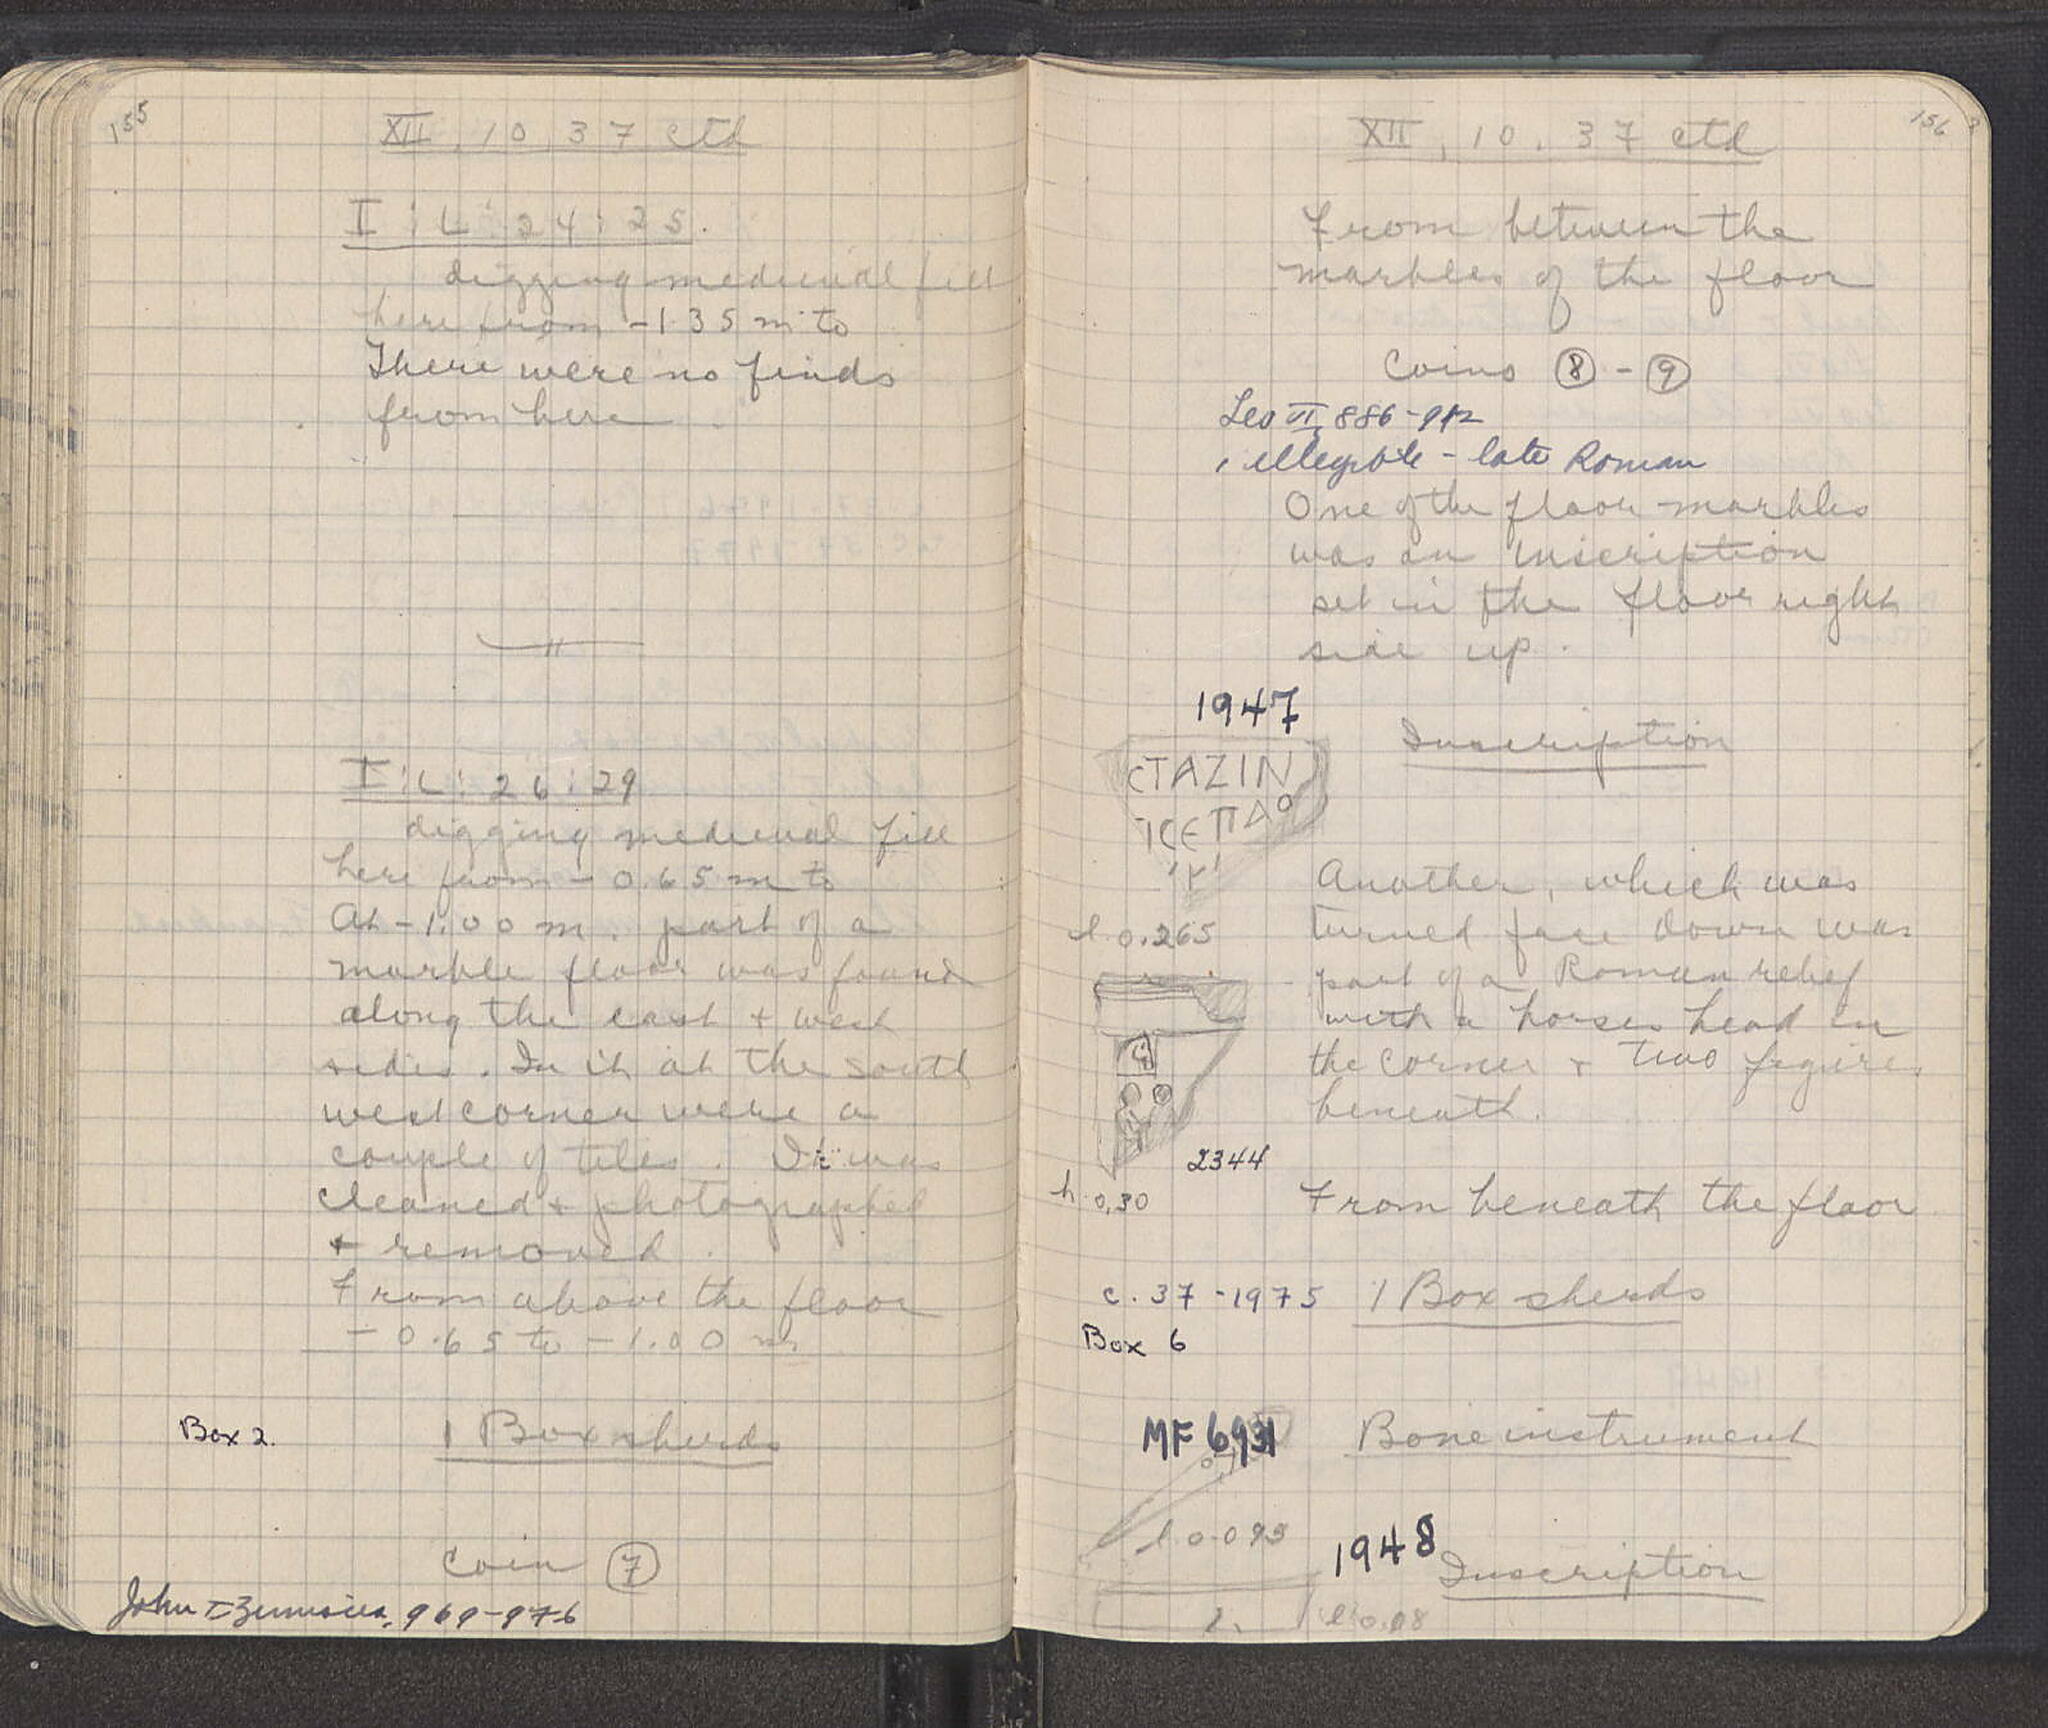 155
XII, 10, 37 ctd
I : L : 24 : 25.
digging medieval fill
here from -1.35 m to
There were no finds
from here
I : L : 26 : 29
digging medieval fill
here from -0.65 m to
At -1.00 m. part of a
marble floor was found
along the east + west
sides. In it at the south
west corner were a
couple of tiles. It was
cleaned + photographed
+ removed.
From above the floor
-0.65 to -1.00 m
Box 2. 1 Box sherds
Coin 7
John Tzimisces, 969-976
156
XII, 10, 37 ctd
From between the
marbles of the floor
Coins 8 - 9
Leo VI, 886-912
1 illegible - late Roman
One of the floor marbles
was an inscription
set in the floor right
side up.
1947 Inscription
CTAZIN
ICEΠΔO
Another, which was
turned face down was
l. 0.265
part of a Roman relief
with a horses head in
the corner + two figures
beneath.
2344
h. 0,30 From beneath the floor
c. 37-1975 1 Box sherds
Box 6
MF 6931 Bone instrument
l. 0.093
1948 Inscription